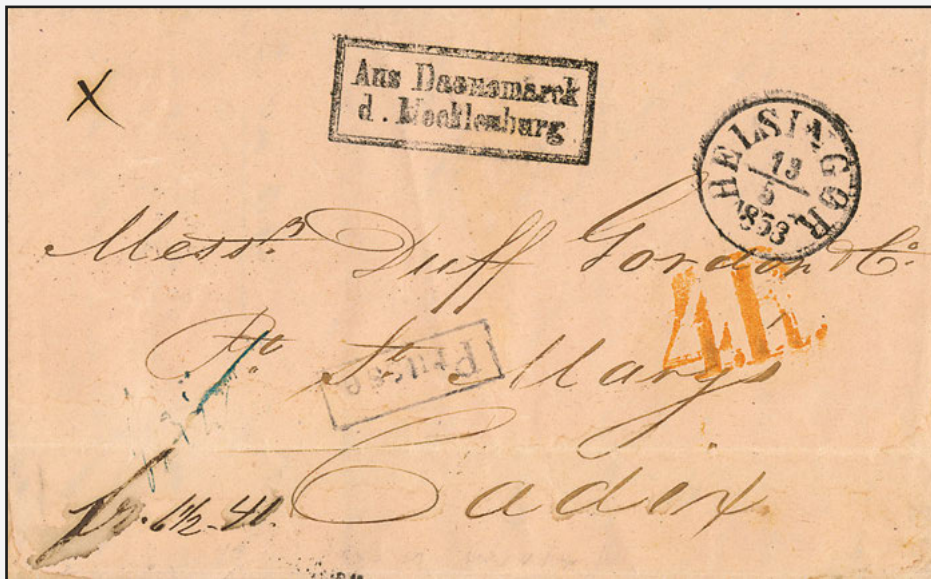 X
Aus Daenemarck
d. Mecklenburg
HELSINGÖR
13
5
1853
Messrs Duff Gordon & Co.
4.R.
Pto. St. Marys
Prusse
Cadix
6 1/2 - 41.